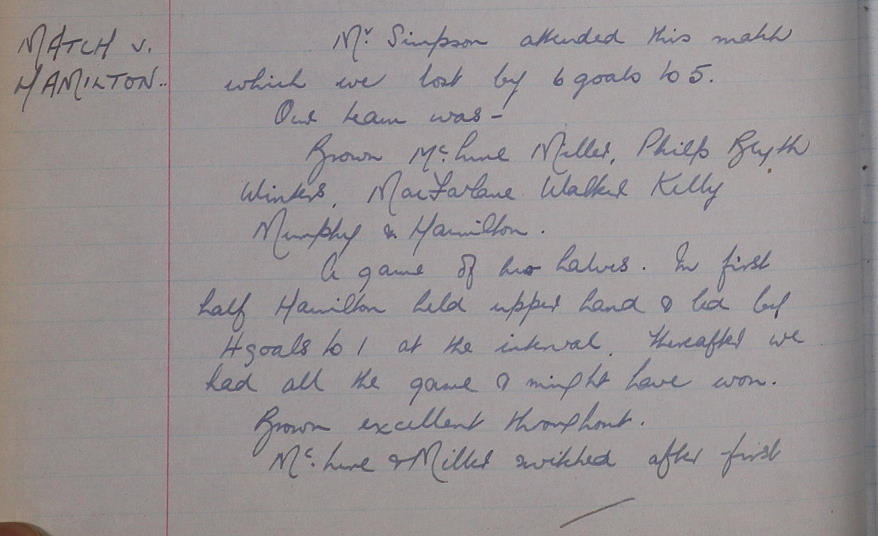 MATCH v.
HAMILTON.
Mr Simpson attended this match
which we lost by 6 goals to 5.
Our team was -
Brown McLure Miller, Philp Blyth
Winters, MacFarlane Walker Kelly
Murphy & Hamilton.
A game of two halves. In first
half Hamilton held upper hand & led by
4 goals to 1 at the interval. Thereafter we
had all the game & might have won.
Brown excellent throughout.
McLure & Miller switched after first